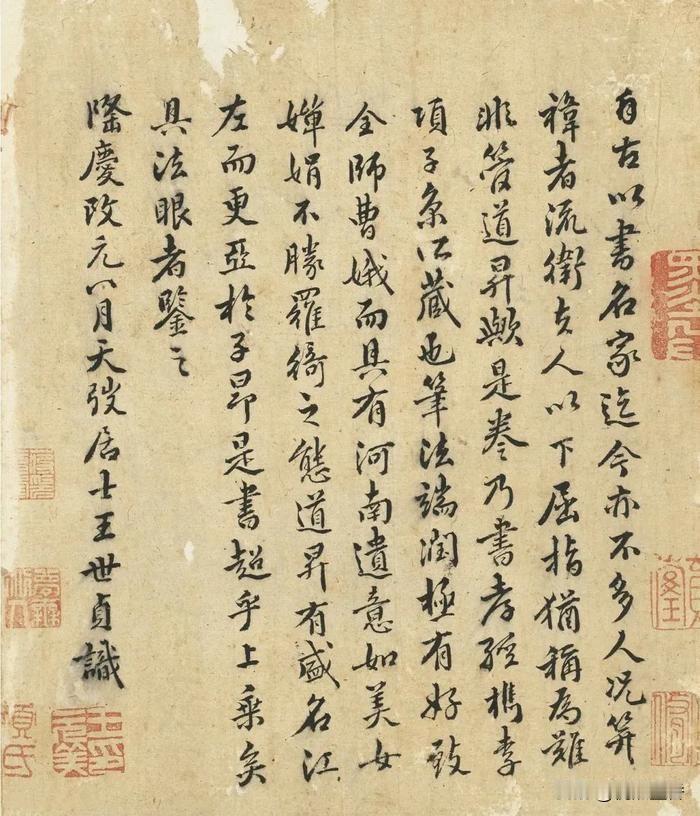 自古以書名家迄今亦不多人况笄
褘者流衛夫人以下屈指猶稱為難
非管道昇歟是卷乃書孝經檇李
項子京所藏也筆法端潤極有好致
全師曹娥而具有河南遺意如美女
嬋娟不勝羅綺之態道昇有盛名江
左而更亞於子昂是書超乎上乘矣
具法眼者鑒之
隆慶改元八月天弢居士王世貞識
項氏